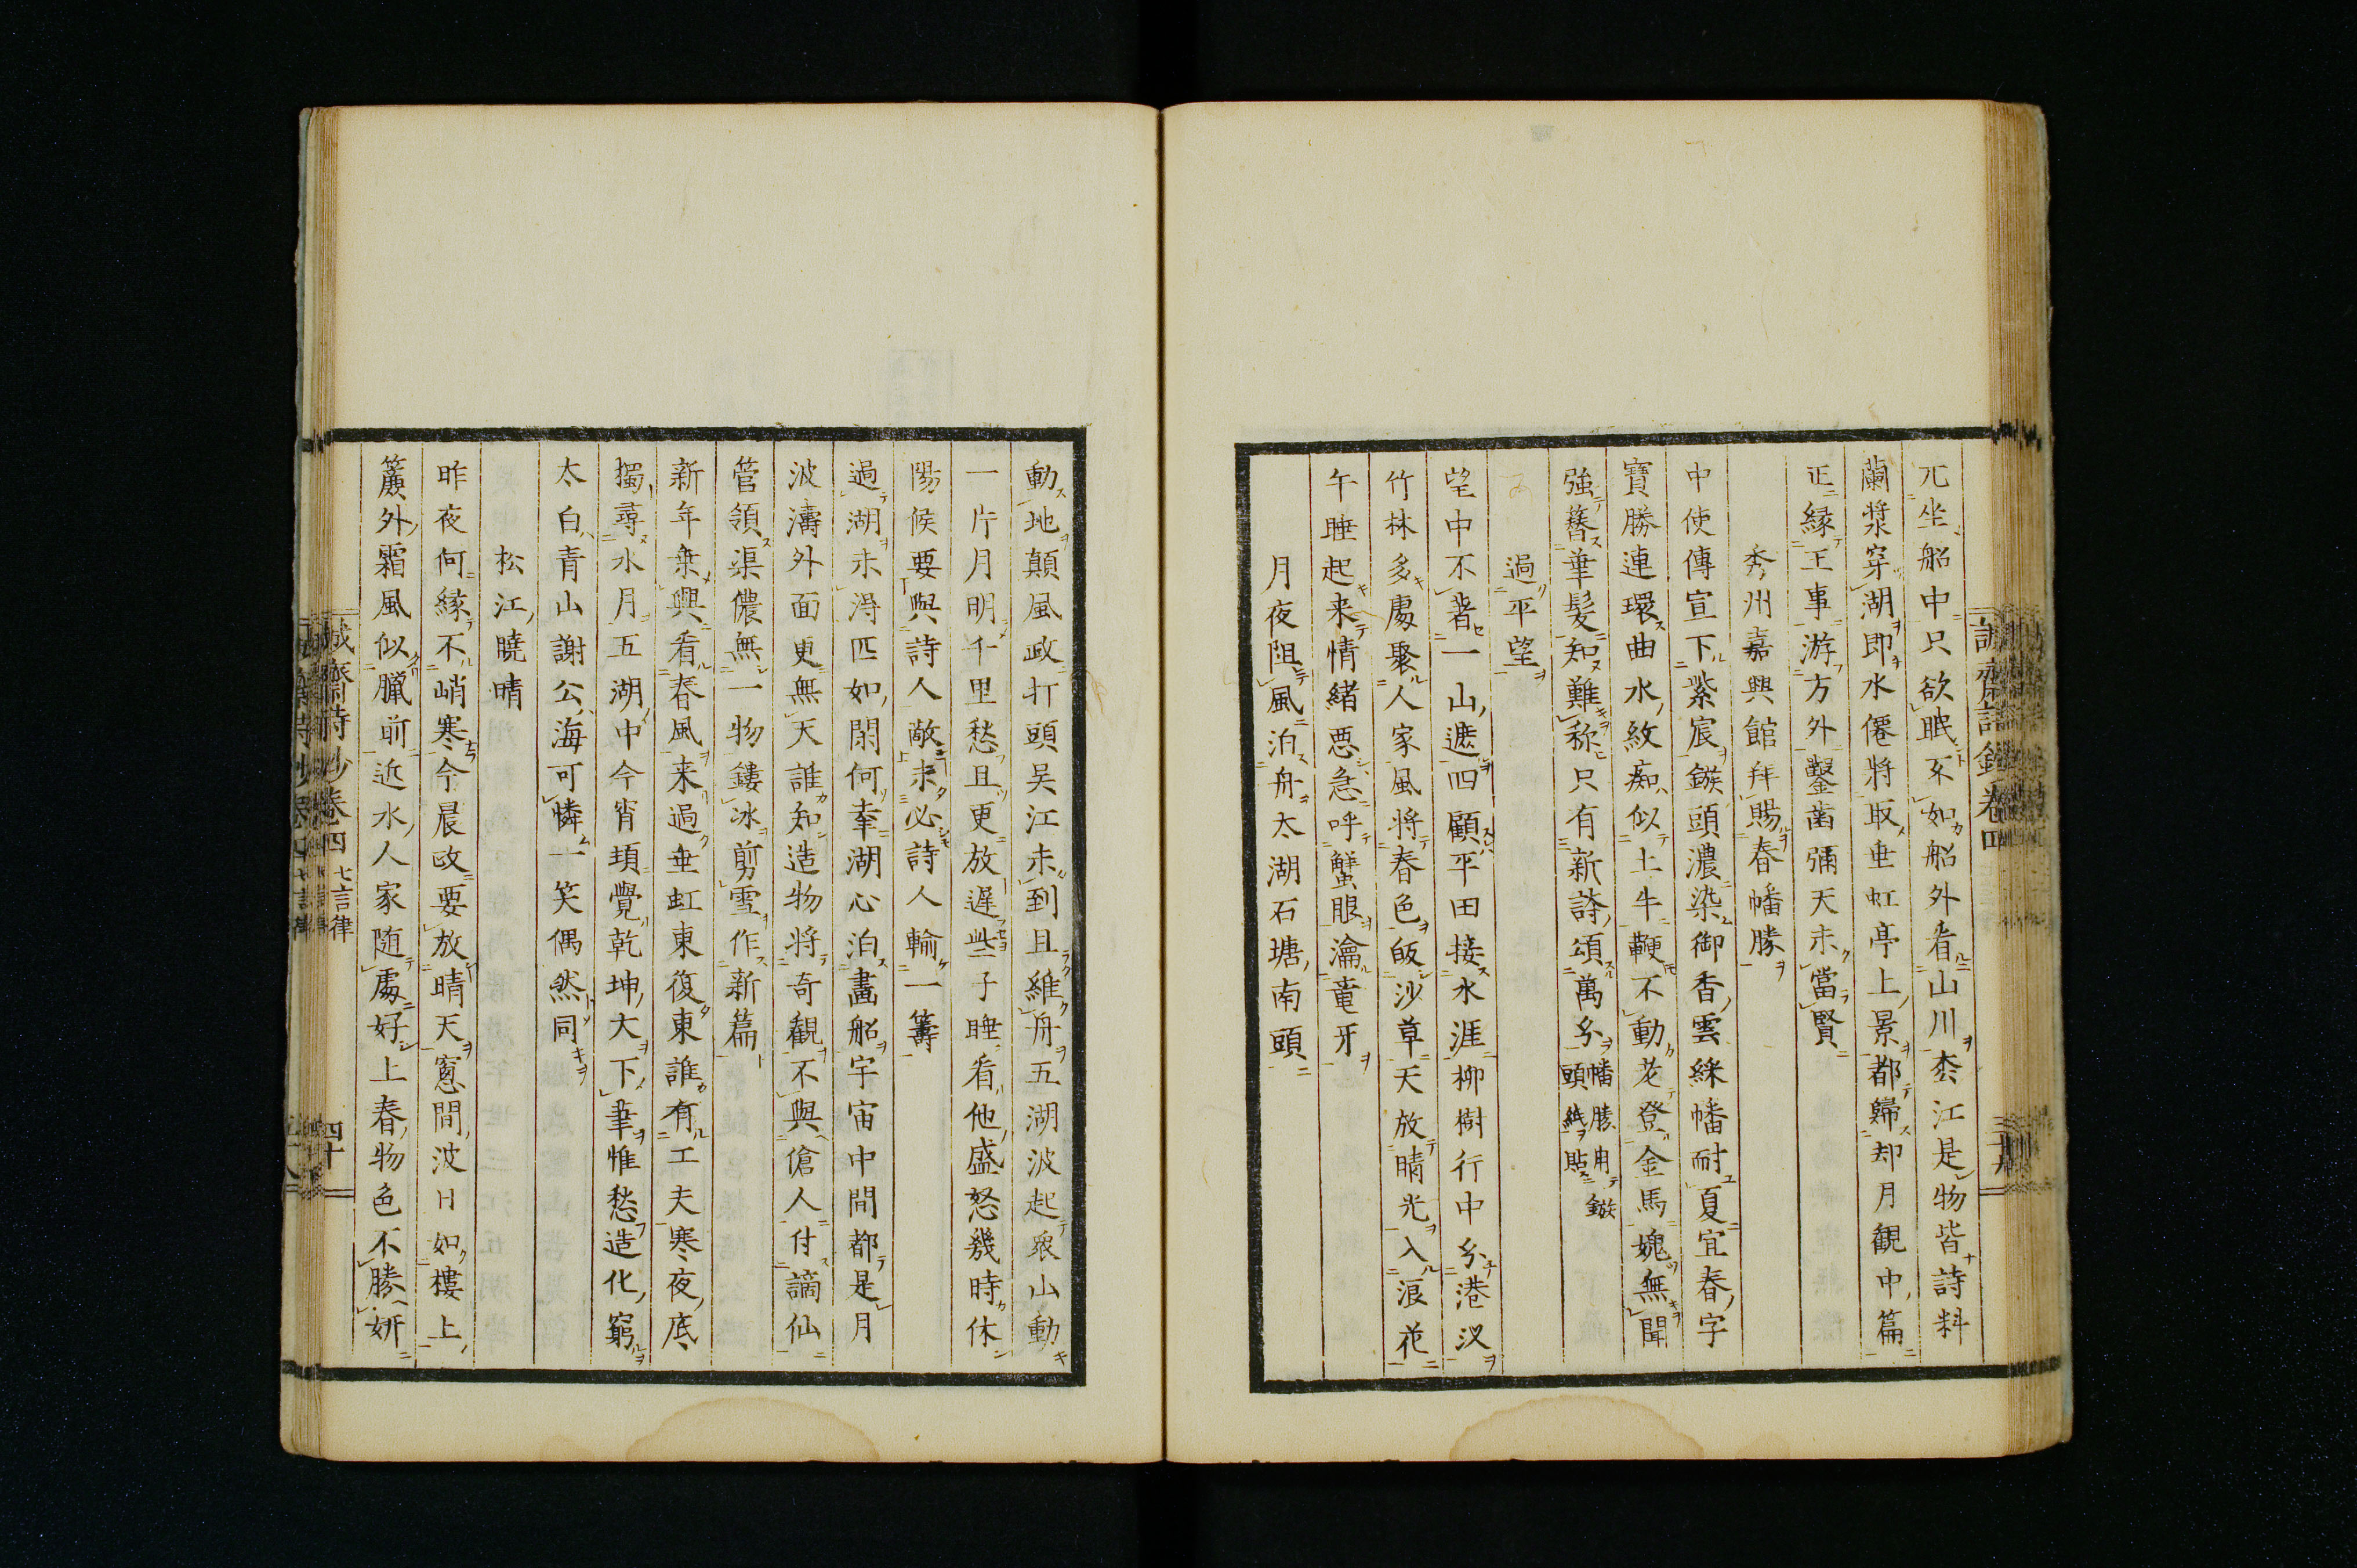 兀坐船中只欲眠不如船外看山川松江是物皆詩料
蘭槳穿湖即水僊將取垂虹亭上景都歸却月觀中篇
正緣王事游方外鑿齒彌天未當賢
秀州嘉興館拜賜春幡勝
中使傳宣下紫宸鏃頭濃染御香雲綵幡耐夏宜春字
寶勝連環曲水紋痴似土牛鞭不動老登金馬媿無聞
強簪華髮知難称只有新詩頌萬分
幡勝用鏃
頭紙貼
過平望
望中不著一山遮四顧平田接水涯柳樹行中分港汊
竹林多處聚人家風将春色皈沙草天放晴光入浪花
午睡起来情緒悪急呼蟹眼瀹竜牙
月夜阻風泊舟太湖石塘南頭
動地顛風政打頭吴江未到且維舟五湖波起衆山動
一片月明千里愁且更放遅些子睡看他盛怒幾時休
陽侯要與詩人敵未必詩人輸一籌
過湖未淂匹如閑何幸湖心泊畵船宇宙中間都是月
波濤外面更無天誰知造物将奇觀不與傖人付謫仙
管領渠儂無一物鏤冰剪雪作新篇
新年乗興看春風来過垂虹東復東誰有工夫寒夜底
獨尋水月五湖中今宵頓覺乾坤大下筆惟愁造化窮
太白青山謝公海可憐一笑偶然同
松江曉晴
昨夜何縁不峭寒今晨政要放晴天窓間波日如樓上
簾外霜風似臘前近水人家随處好上春物色不勝妍
誠齋詩鈔卷四 七言律
四十